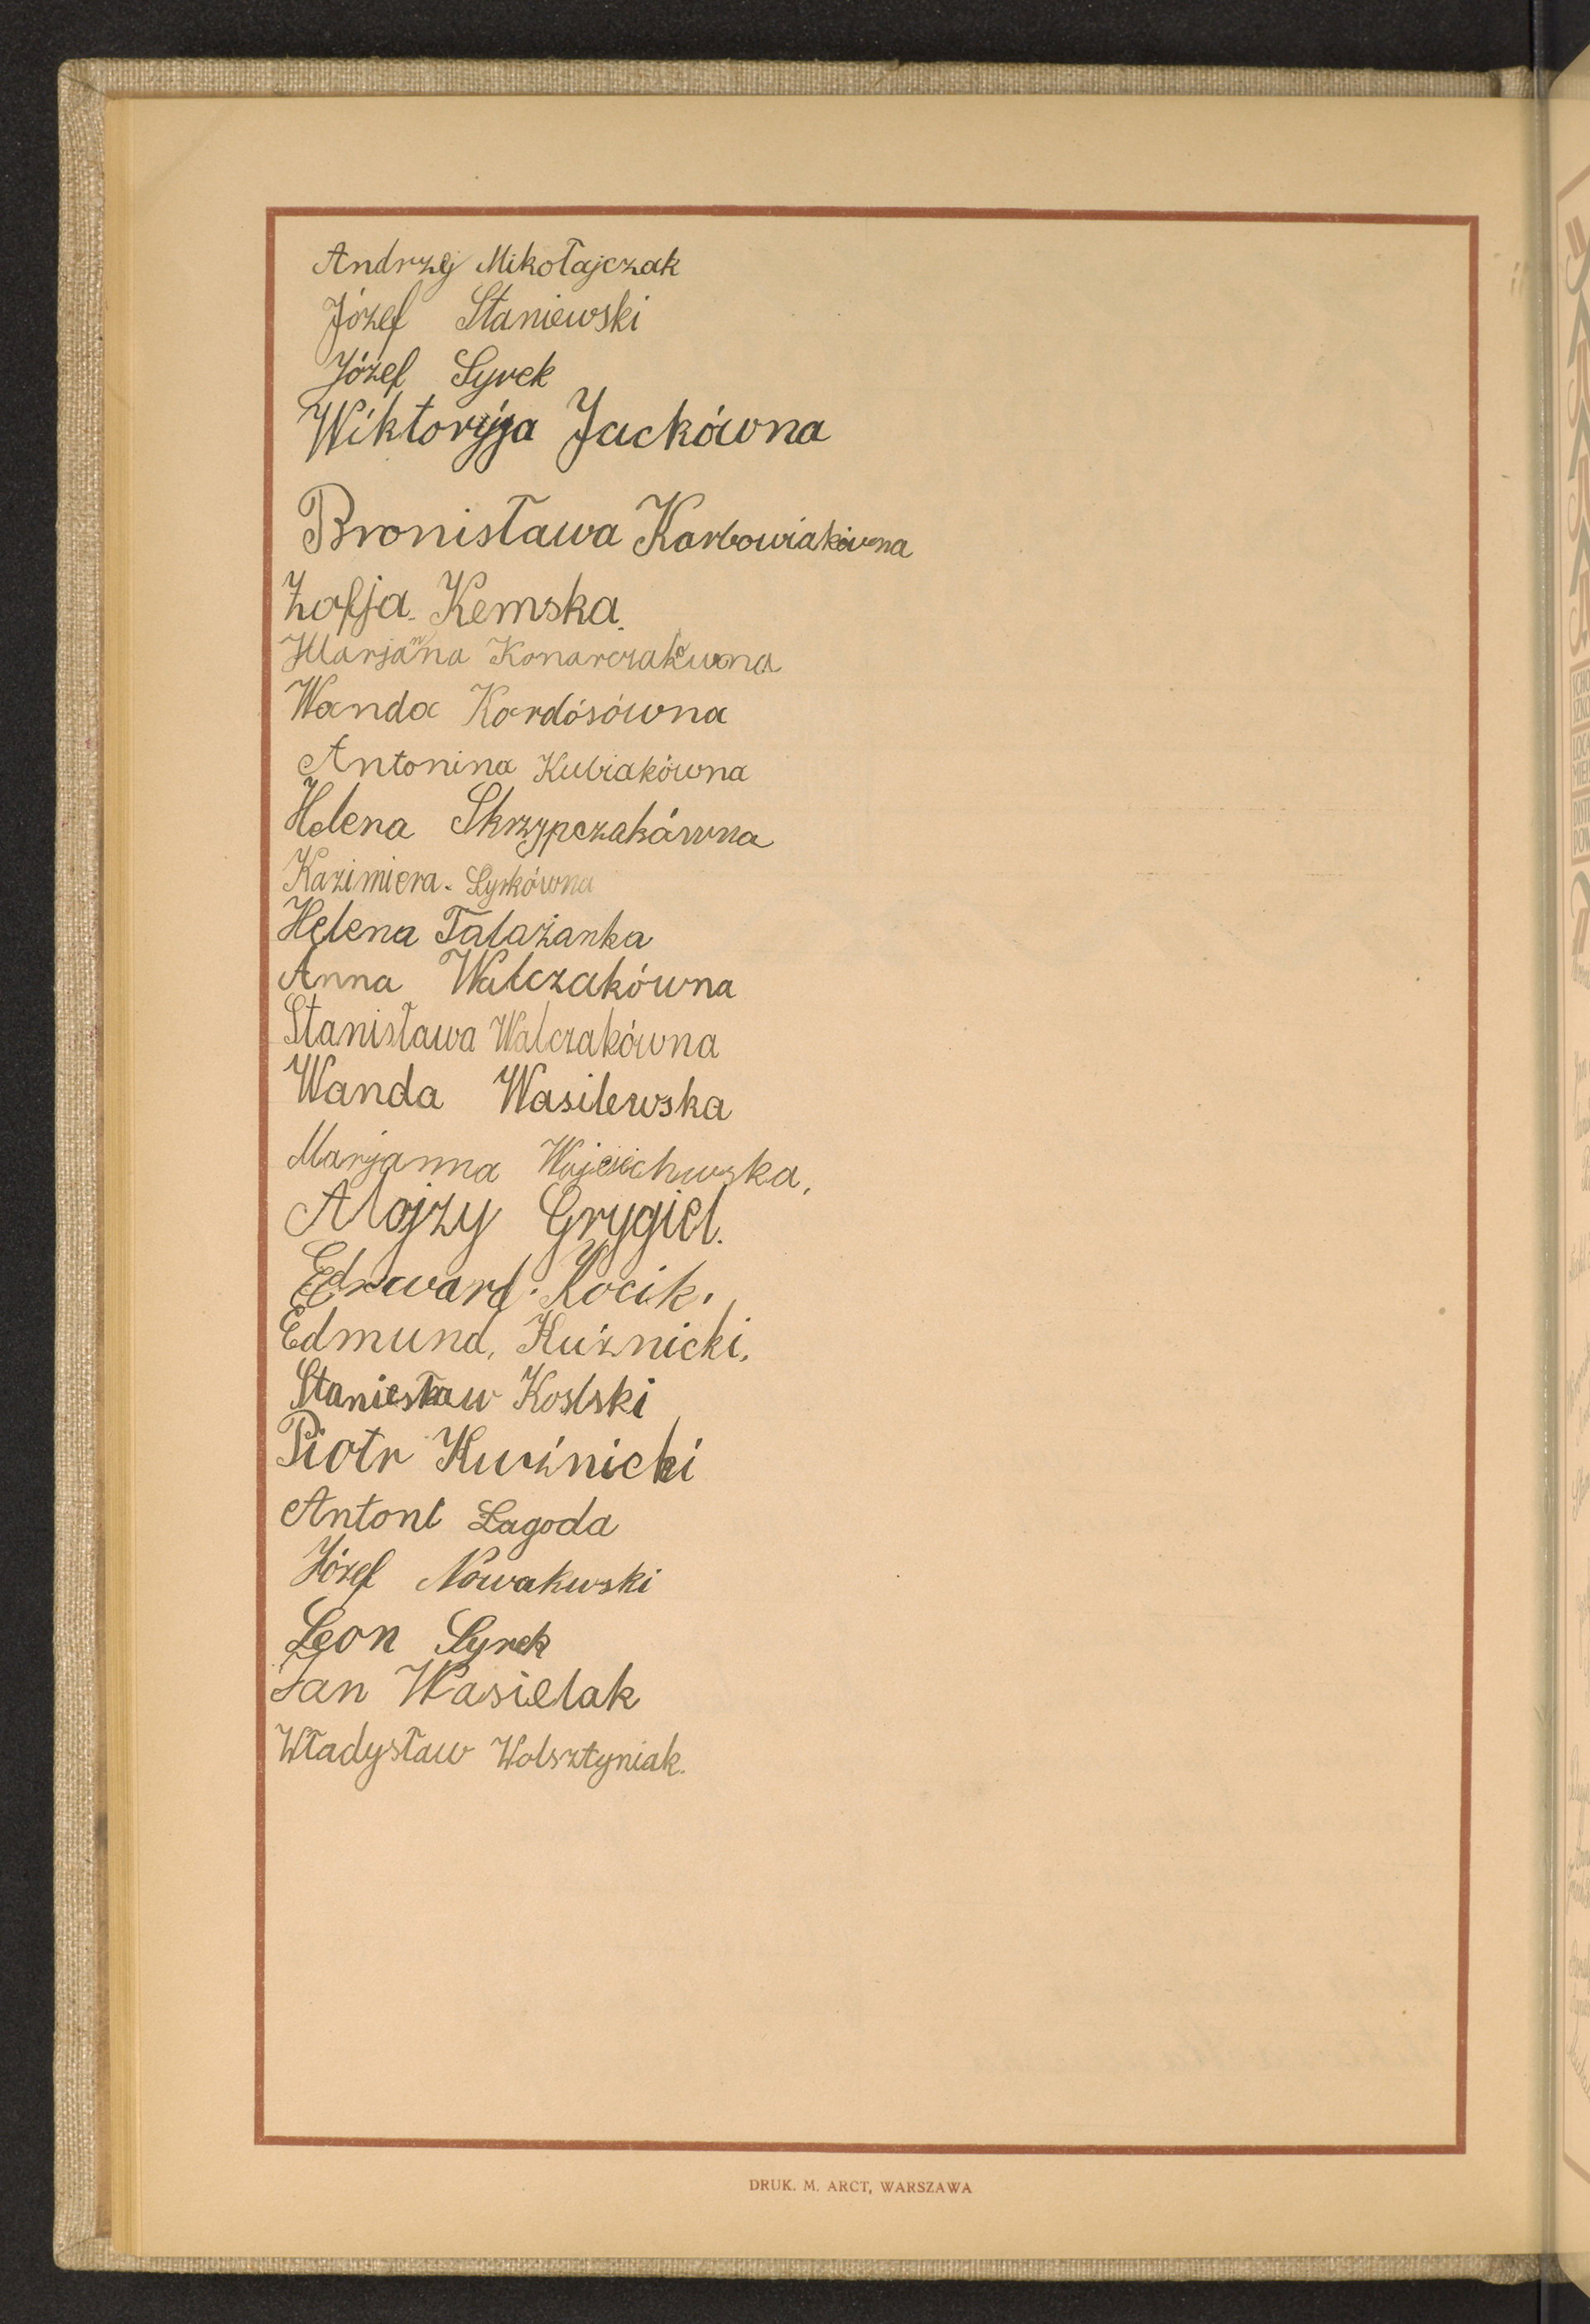 Andrzej Mikołajczak
Józef Staniewski
Józef Syrek
Wiktoryja Jackówna
Bronisława Karbowiakówna
Zofja. Kemska.
Marjanna Konarczakówna
Wanda Kardósówna
Antonina Kubiakówna
Helena Skrzypczakówna
Kazimiera. Syrkówna
Helena Talażanka
Anna Walczakówna
Stanisława Walczakówna
Wanda Wasilewska
Marjanna Wojciechwska,
Alojzy Grygiel.
Edward. Kocik.
Edmund, Kuźnicki.
Stanisław Koslski
Piotr Kuźnicki
Antoni Łagoda
Józef Nowakwski
Leon Syrek
Jan Wasielak
Władysław Wolsztyniak.
DRUK. M. ARCT, WARSZAWA